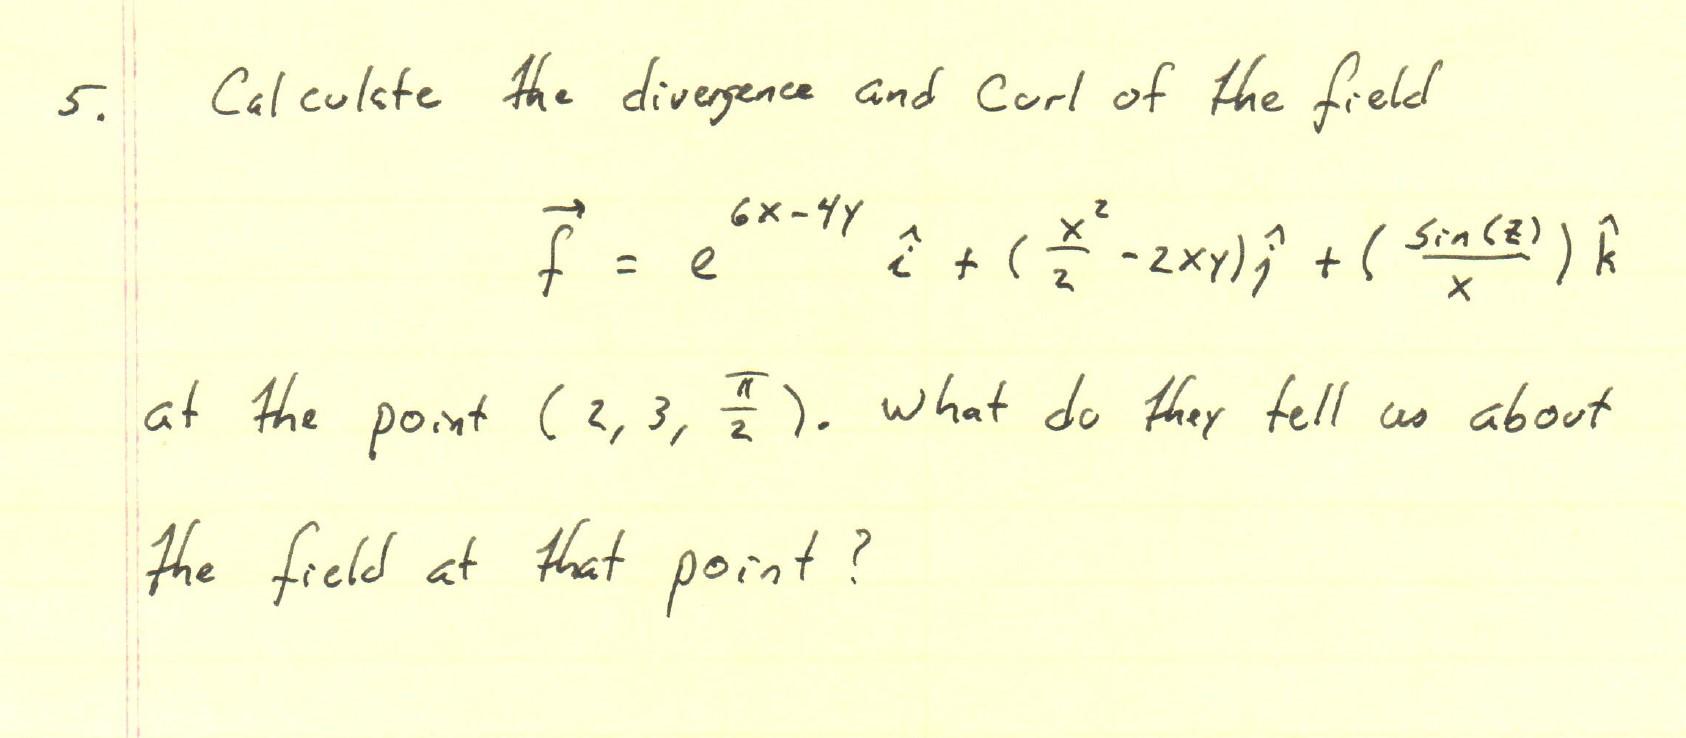 5. Calculate the divergence and Curl of the field
f⃗ = e^{6x-4y} î + (x²/2 - 2xy) ĵ + (sin(z)/x) k̂
at the point (2, 3, π/2). What do they tell us about
the field at that point?